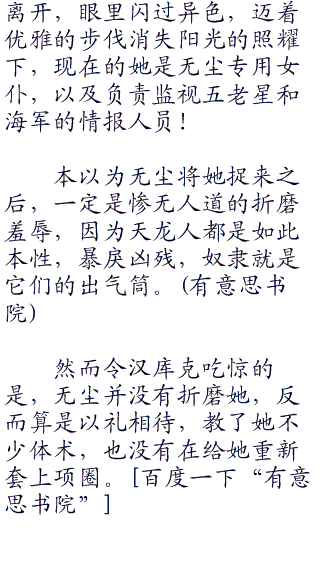 离开，眼里闪过异色，迈着
优雅的步伐消失阳光的照耀
下，现在的她是无尘专用女
仆，以及负责监视五老星和
海军的情报人员！
本以为无尘将她捉来之
后，一定是惨无人道的折磨
羞辱，因为天龙人都是如此
本性，暴戾凶残，奴隶就是
它们的出气筒。(有意思书
院)
然而令汉库克吃惊的
是，无尘并没有折磨她，反
而算是以礼相待，教了她不
少体术，也没有在给她重新
套上项圈。[百度一下“有意
思书院”]